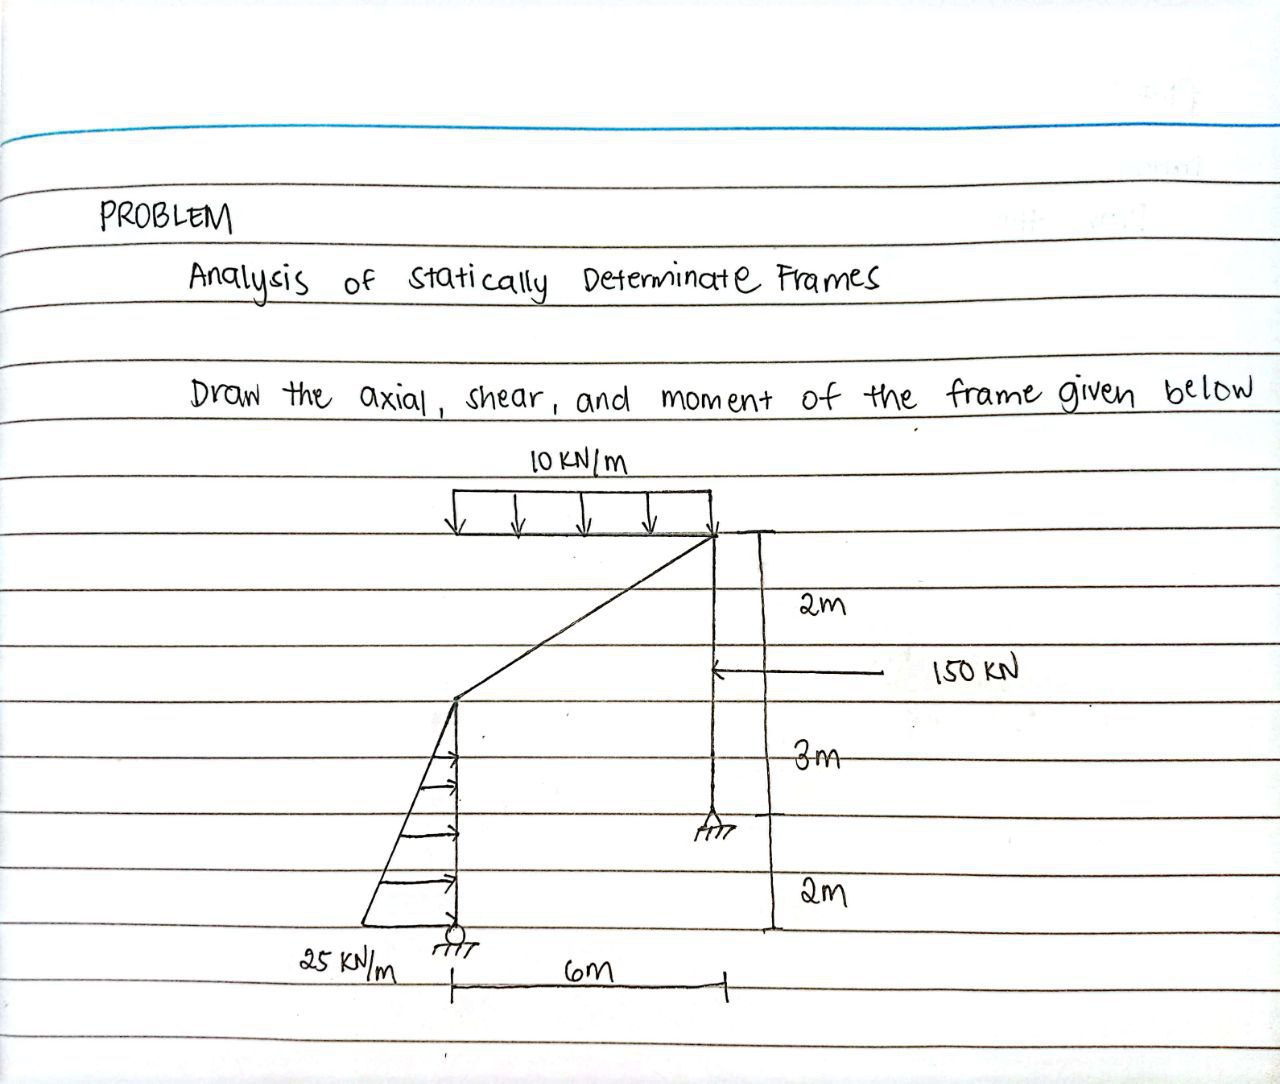 PROBLEM
Analysis of Statically Determinate Frames
Draw the axial, shear, and moment of the frame given below
10 KN/m
2m
150 KN
3m
2m
25 KN/m
6m